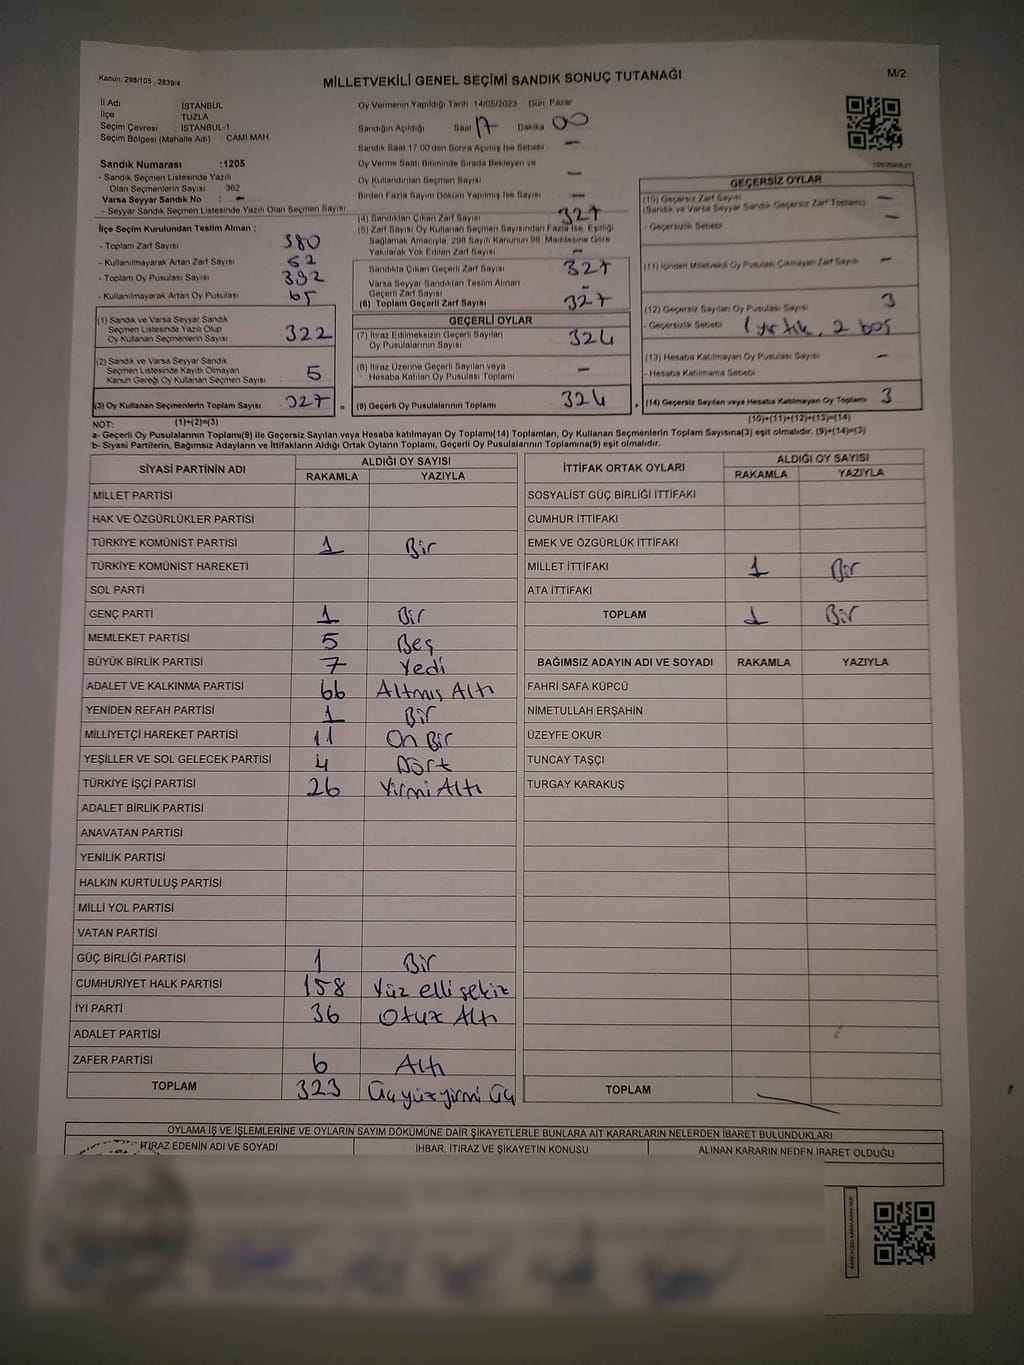 Kanun: 298/105 , 2839/4
MİLLETVEKİLİ GENEL SEÇİMİ SANDIK SONUÇ TUTANAĞI
M/2
İl Adı : İSTANBUL
İlçe : TUZLA
Seçim Çevresi : İSTANBUL-1
Seçim Bölgesi (Mahalle Adı) : CAMİ MAH
Sandık Numarası :1205
- Sandık Seçmen Listesinde Yazılı
Olan Seçmenlerin Sayısı 362
Varsa Seyyar Sandık No : -
- Seyyar Sandık Seçmen Listesinde Yazılı Olan Seçmen Sayısı
İlçe Seçim Kurulundan Teslim Alınan ;
- Toplam Zarf Sayısı 380
- Kullanılmayarak Artan Zarf Sayısı
- Toplam Oy Pusulası Sayısı 392
- Kullanılmayarak Artan Oy Pusulası 65
(1) Sandık ve Varsa Seyyar Sandık
Seçmen Listesinde Yazılı Olup
Oy Kullanan Seçmen Sayısı 322
(2) Sandık ve Varsa Seyyar Sandık
Seçmen Listesinde Kayıtlı Olmayan
Kanun Gereği Oy Kullanan Seçmen Sayısı 5
(3) Oy Kullanan Seçmenlerin Toplam Sayısı 327
Oy Vermenin Yapıldığı Tarih 14/05/2023 Gün Pazar
Sandığın Açıldığı Saat 17 Dakika 00
Sandık Saat 17:00'den Sonra Açılmış İse Sebebi -
Oy Verme Saati Bitiminde Sırada Bekleyen ve
Oy Kullandırılan Seçmen Sayısı -
Birden Fazla Sayım Döküm Yapılmış İse Sayısı -
(4) Sandıktan Çıkan Zarf Sayısı 327
(5) Zarf Sayısı Oy Kullanan Seçmen Sayısından Fazla İse, Eşitliği
Sağlamak Amacıyla, 298 Sayılı Kanunun 98. Maddesine Göre
Yakılarak Yok Edilen Zarf Sayısı -
Sandıkta Çıkan Geçerli Zarf Sayısı 327
Varsa Seyyar Sandıktan Teslim Alınan
Geçerli Zarf Sayısı -
(6) Toplam Geçerli Zarf Sayısı 327
GEÇERLİ OYLAR
(7) İtiraz Edilmeksizin Geçerli Sayılan
Oy Pusulalarının Sayısı 324
(8) İtiraz Üzerine Geçerli Sayılan veya
Hesaba Katılan Oy Pusulası Toplamı -
= (9) Geçerli Oy Pusulalarının Toplamı 324
GEÇERSİZ OYLAR
(10) Geçersiz Zarf Sayısı -
(Sandık ve Varsa Seyyar Sandık Geçersiz Zarf Toplamı) -
- Geçersizlik Sebebi
(11) İçinden Milletvekili Oy Pusulası Çıkmayan Zarf Sayısı -
(12) Geçersiz Sayılan Oy Pusulası Sayısı 3
- Geçersizlik Sebebi 1 yırtık, 2 boş
(13) Hesaba Katılmayan Oy Pusulası Sayısı -
- Hesaba Katılmama Sebebi
+ (14) Geçersiz Sayılan veya Hesaba Katılmayan Oy Toplamı 3
NOT: (1)+(2)=(3)
(10)+(11)+(12)+(13)=(14)
a- Geçerli Oy Pusulalarının Toplamı(9) ile Geçersiz Sayılan veya Hesaba katılmayan Oy Toplamı(14) Toplamları, Oy Kullanan Seçmenlerin Toplam Sayısına(3) eşit olmalıdır. (9)+(14)=(3)
b- Siyasi Partilerin, Bağımsız Adayların ve İttifakların Aldığı Ortak Oyların Toplamı, Geçerli Oy Pusulalarının Toplamına(9) eşit olmalıdır.
SİYASİ PARTİNİN ADI ALDIĞI OY SAYISI
RAKAMLA YAZIYLA
MİLLET PARTİSİ
HAK VE ÖZGÜRLÜKLER PARTİSİ
TÜRKİYE KOMÜNİST PARTİSİ 1 Bir
TÜRKİYE KOMÜNİST HAREKETİ
SOL PARTİ
GENÇ PARTİ 1 Bir
MEMLEKET PARTİSİ 5 Beş
BÜYÜK BİRLİK PARTİSİ 7 Yedi
ADALET VE KALKINMA PARTİSİ 66 Altmış Altı
YENİDEN REFAH PARTİSİ 1 Bir
MİLLİYETÇİ HAREKET PARTİSİ 11 On Bir
YEŞİLLER VE SOL GELECEK PARTİSİ 4 Dört
TÜRKİYE İŞÇİ PARTİSİ 26 Yirmi Altı
ADALET BİRLİK PARTİSİ
ANAVATAN PARTİSİ
YENİLİK PARTİSİ
HALKIN KURTULUŞ PARTİSİ
MİLLİ YOL PARTİSİ
VATAN PARTİSİ
GÜÇ BİRLİĞİ PARTİSİ 1 Bir
CUMHURİYET HALK PARTİSİ 158 Yüz elli sekiz
İYİ PARTİ 36 Otuz Altı
ADALET PARTİSİ
ZAFER PARTİSİ 6 Altı
TOPLAM 323 Üçyüzyirmi Üç
İTTİFAK ORTAK OYLARI ALDIĞI OY SAYISI
RAKAMLA YAZIYLA
SOSYALİST GÜÇ BİRLİĞİ İTTİFAKI
CUMHUR İTTİFAKI
EMEK VE ÖZGÜRLÜK İTTİFAKI
MİLLET İTTİFAKI 1 Bir
ATA İTTİFAKI
TOPLAM 1 Bir
BAĞIMSIZ ADAYIN ADI VE SOYADI RAKAMLA YAZIYLA
FAHRİ SAFA KÜPCÜ
NİMETULLAH ERŞAHİN
ÜZEYFE OKUR
TUNCAY TAŞÇI
TURGAY KARAKUŞ
TOPLAM
OYLAMA İŞ VE İŞLEMLERİNE VE OYLARIN SAYIM DÖKÜMÜNE DAİR ŞİKAYETLERLE BUNLARA AİT KARARLARIN NELERDEN İBARET BULUNDUKLARI
İTİRAZ EDENİN ADI VE SOYADI İHBAR, İTİRAZ VE ŞİKAYETİN KONUSU ALINAN KARARIN NEDEN İBARET OLDUĞU